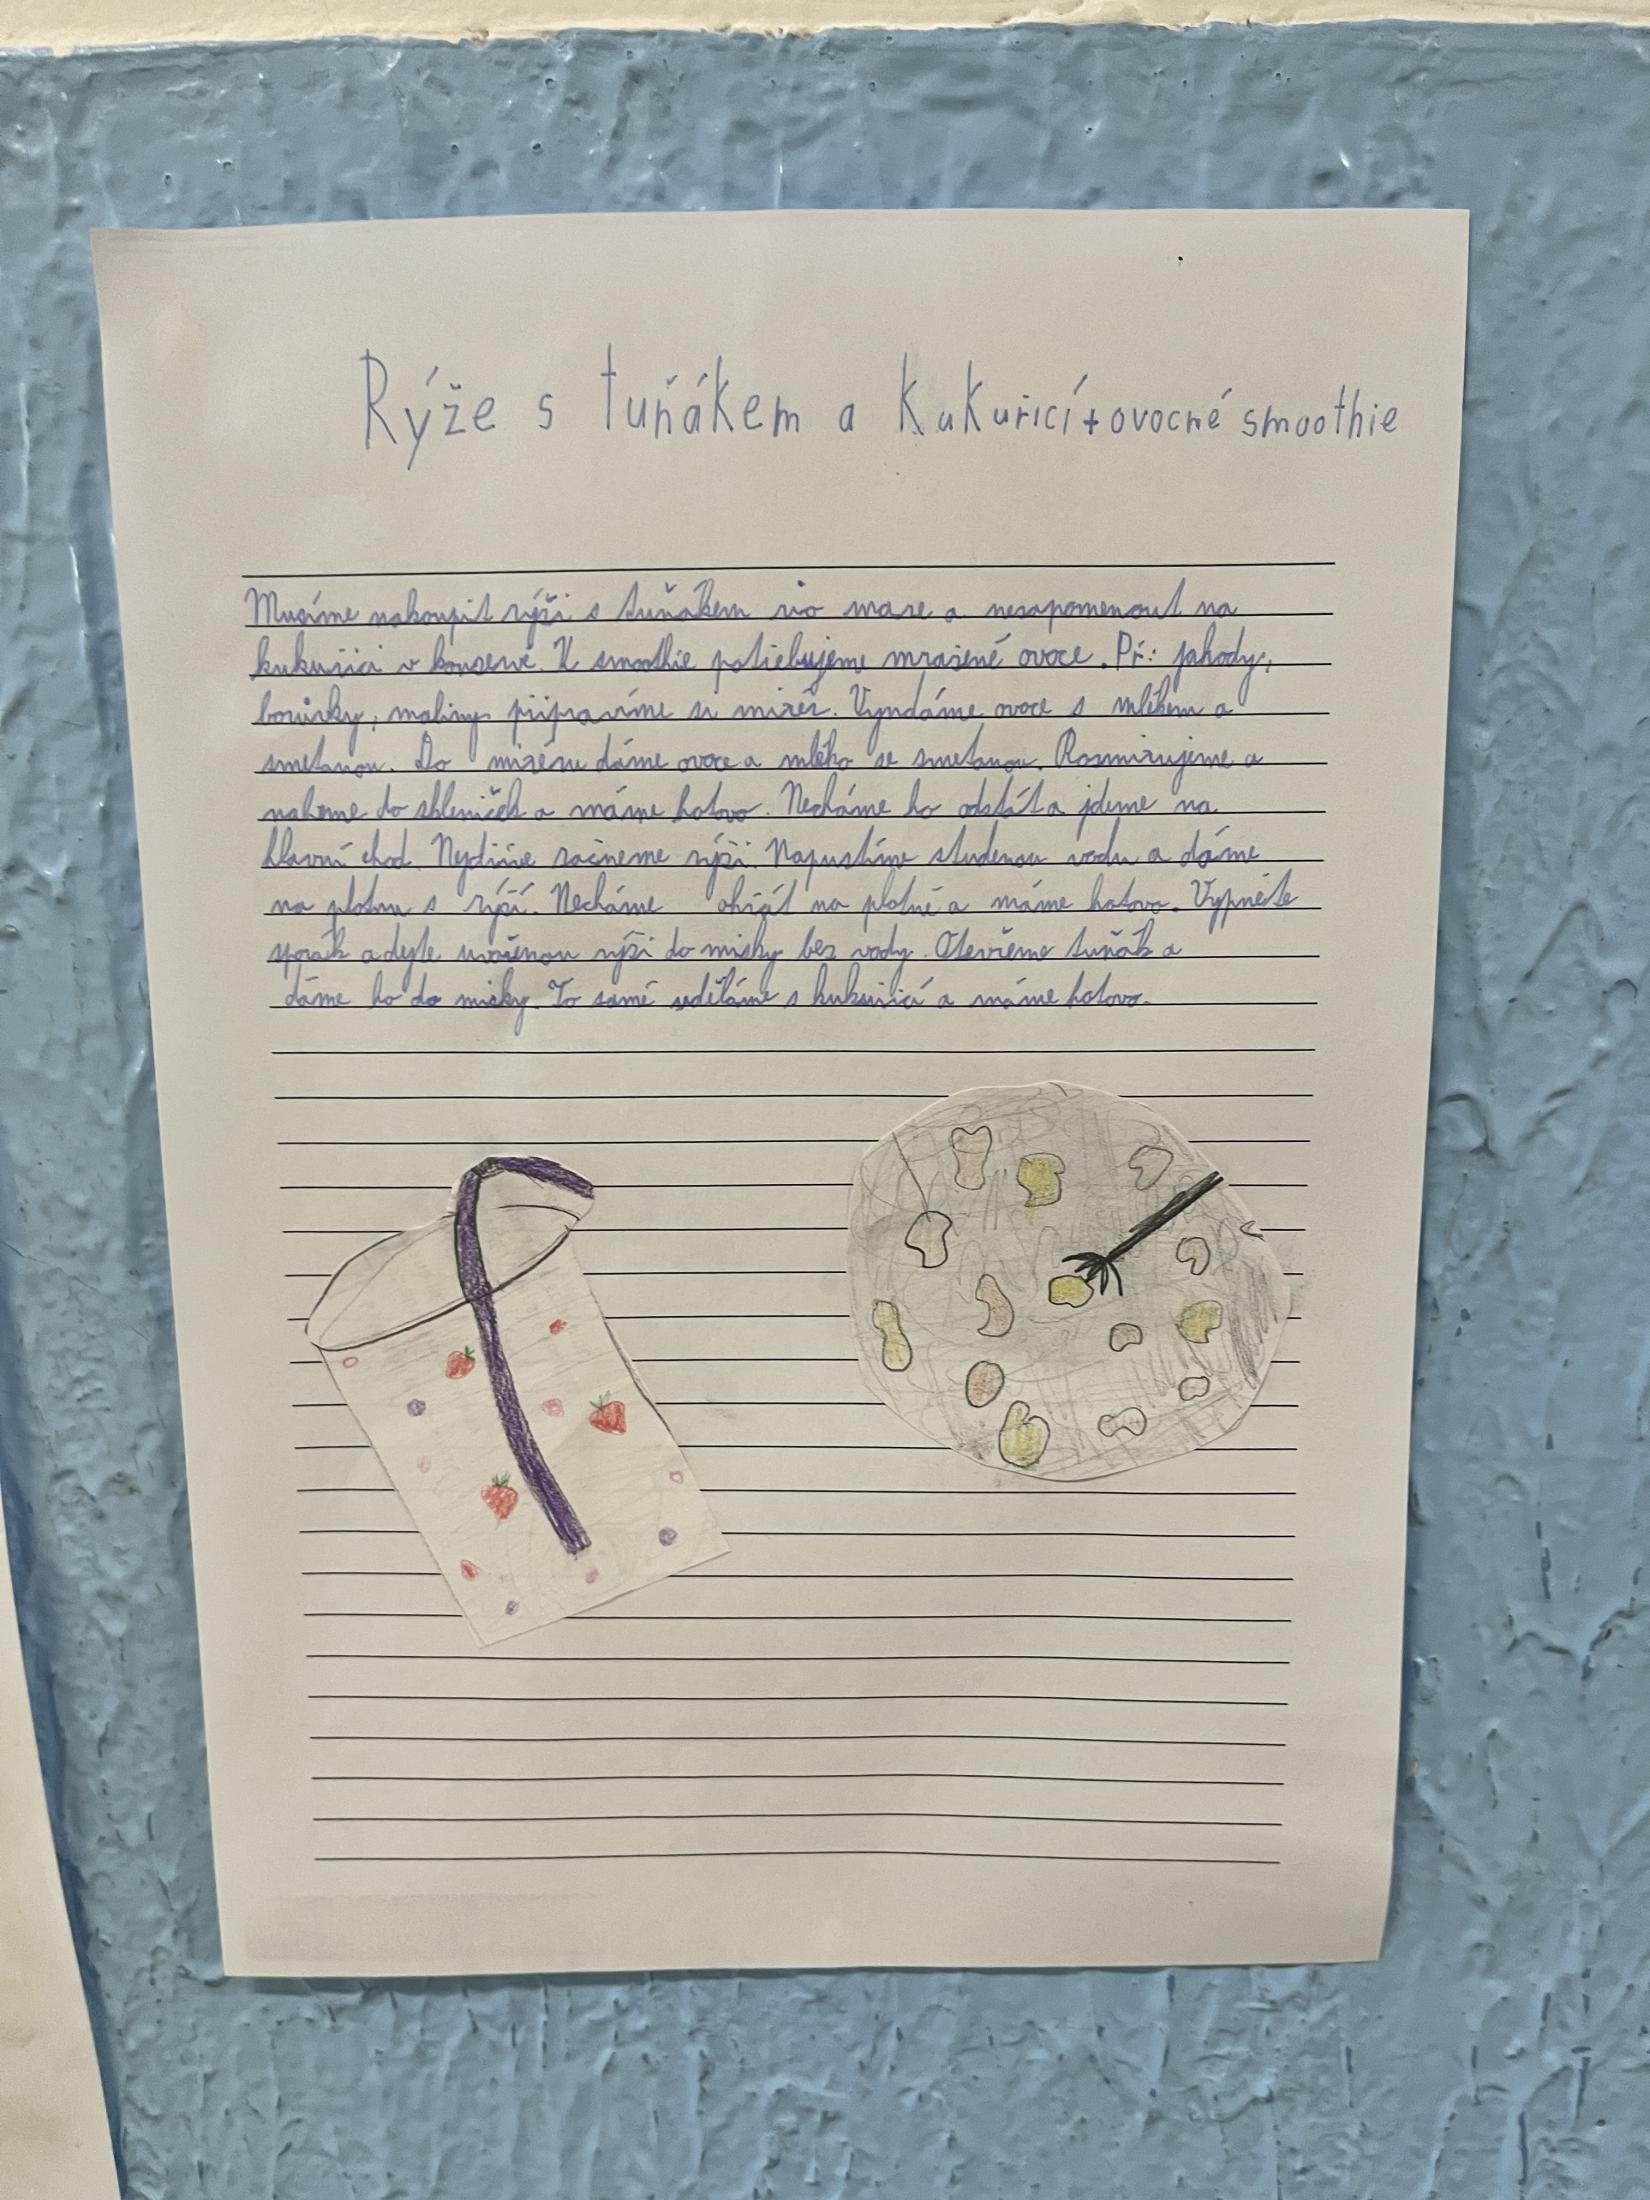 Rýže s tuňákem a kukuřicí + ovocné smoothie
Musíme nakoupit rýži s tuňákem rio mare a nezapomenout na
kukuřici v konzervě. K smoothie potřebujeme mražené ovoce. Př.: jahody,
borůvky, maliny připravíme si mixér. Vyndáme ovoce s mlékem a
smetanou. Do mixéru dáme ovoce a mléko se smetanou. Rozmixujeme a
naleme do skleniček a máme hotovo. Necháme ho odstát a jdeme na
hlavní chod. Nejdříve začneme rýži. Napustíme studenou vodu a dáme
na plotnu s rýží. Necháme ohřát na plotně a máme hotovo. Vypněte
sporák a dejte uvařenou rýži do misky bez vody. Otevřeme tuňák a
dáme ho do misky. To samé uděláme s kukuřicí a máme hotovo.